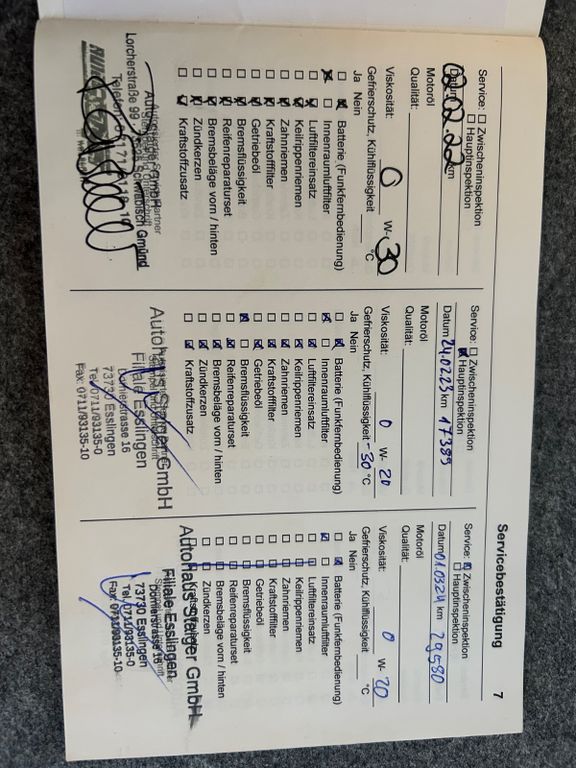 Servicebestätigung 7
Service: ☐ Zwischeninspektion
☐ Hauptinspektion
Datum 02.02.22 km
Motoröl
Qualität:
Viskosität: 0 W- 30
Gefrierschutz, Kühlflüssigkeit °C
Ja Nein
Batterie (Funkfernbedienung)
Innenraumluftfilter
Luftfiltereinsatz
Keilrippenriemen
Zahnriemen
Kraftstofffilter
Getriebeöl
Bremsflüssigkeit
Reifenreparaturset
Bremsbeläge vorn / hinten
Zündkerzen
Kraftstoffzusatz
Lorcherstraße 99
Schwäbisch Gmünd
Service: ☐ Zwischeninspektion
☒ Hauptinspektion
Datum 24.02.23 km 17389
Motoröl
Qualität:
Viskosität: 0 W- 20
Gefrierschutz, Kühlflüssigkeit -30 °C
Ja Nein
Batterie (Funkfernbedienung)
Innenraumluftfilter
Luftfiltereinsatz
Keilrippenriemen
Zahnriemen
Kraftstofffilter
Getriebeöl
Bremsflüssigkeit
Reifenreparaturset
Bremsbeläge vorn / hinten
Zündkerzen
Kraftstoffzusatz
Autohaus Staiger GmbH
Filiale Esslingen
Dornierstrasse 16
73730 Esslingen
Tel. 0711/93135-0
Fax: 0711/93135-10
Service: ☒ Zwischeninspektion
☐ Hauptinspektion
Datum 01.03.24 km 29580
Motoröl
Qualität:
Viskosität: 0 W- 20
Gefrierschutz, Kühlflüssigkeit °C
Ja Nein
Batterie (Funkfernbedienung)
Innenraumluftfilter
Luftfiltereinsatz
Keilrippenriemen
Zahnriemen
Kraftstofffilter
Getriebeöl
Bremsflüssigkeit
Reifenreparaturset
Bremsbeläge vorn / hinten
Zündkerzen
Autohaus Staiger GmbH
Filiale Esslingen
Dornierstrasse 16
73730 Esslingen
Tel. 0711/93135-0
Fax: 0711/93135-10